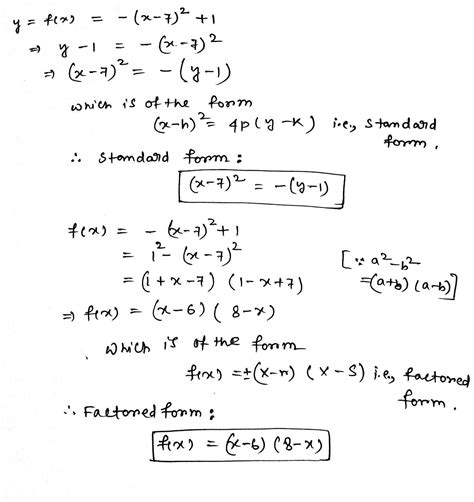 y = f(x) = -(x-7)² + 1
⇒ y - 1 = -(x-7)²
⇒ (x-7)² = -(y-1)
which is of the form
(x-h)² = 4p(y-k) i.e., standard
form.
∴ Standard form:
(x-7)² = -(y-1)
f(x) = -(x-7)² + 1
= 1² - (x-7)²
[∵ a² - b²
= (1 + x - 7) (1 - x + 7)
= (a+b) (a-b)]
⇒ f(x) = (x-6) (8-x)
which is of the form
f(x) = ±(x-r) (x-s) i.e., factored
form.
∴ Factored form:
f(x) = (x-6) (8-x)